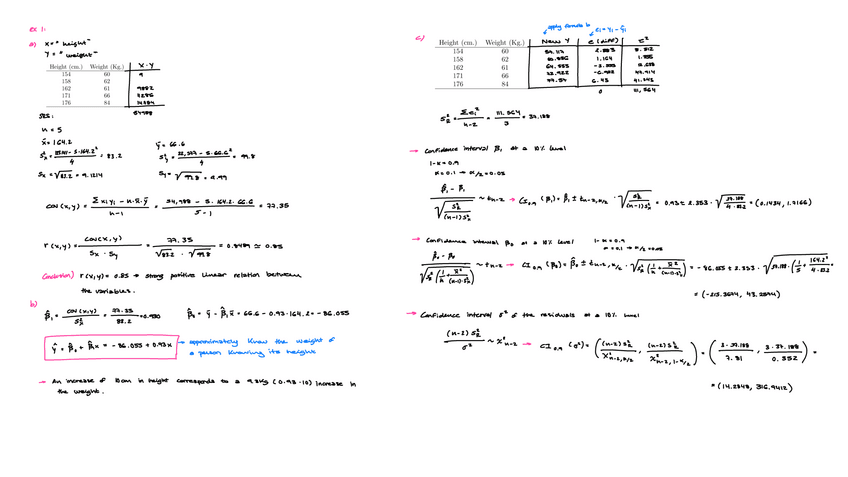 ex 1.
a) X = "height"
Y = "weight"
Height (cm.) Weight (Kg.) X·Y
154 60 9
158 62
162 61 9882
171 66 11286
176 84 14784
54988
SES:
n = 5
x̄ = 164.2 ȳ = 66.6
= 83.2 = 99.8
Sx = √83.2 = 9.1214 Sy = √99.8 = 9.99
cov (x,y) = Σ xi yi − n·x̄·ȳ / n−1 = 54,988 − 5·164.2·66.6 / 5−1 = 77.35
r (x,y) = cov(x,y) / Sx · Sy = 77.35 / √83.2 · √99.8 = 0.8489 ≃ 0.85
Conclusion) r(x,y) = 0.85 → strong positive linear relation between
the variables.
b)
β̂₁ = cov (x,y) / S²x = 77.35 / 83.2 = 0.930 β̂₀ = ȳ − β̂₁x̄ = 66.6 − 0.93·164.2 = −86.055
ŷ = β̂₀ + β̂₁x = −86.055 + 0.93x → approximately know the weight of
a person knowing its height
→ An increase of 10cm in height corresponds to a 9.3Kg (0.93·10) increase in
the weight.
apply formula b eᵢ = yᵢ − ŷᵢ
c) Height (cm.) Weight (Kg.) New Y e (diff) e²
154 60 57.117 2.883
158 62 60.836 1.164
162 61 64.555 −3.555
171 66 72.922 −6.922 47.914
176 84 77.57 6.43
0 111,564
S²R = Σ eᵢ² / n−2 = 111.564 / 3 = 37.188
→ Confidence interval β₁ at a 10% level
1−α = 0.9
α = 0.1 → α/2 = 0.05
β̂₁ − β₁ / √(S²R / (n−1)S²x) ~ tn−2 → CI₀.₉ (β₁) = β̂₁ ± tn−2,α/2 · √(S²R / (n−1)S²x) = 0.93 ± 2.353 · √(37.188 / 4·83.2) = (0.1434, 1.7166)
→ Confidence interval β₀ at a 10% level 1−α = 0.9
α = 0.1 → α/2 = 0.05
β̂₀ − β₀ / √(S²R (1/n + x̄² / (n−1)·S²x)) ~ tn−2 → CI₀.₉ (β₀) = β̂₀ ± tn−2,α/2 · √(S²R (1/n + x̄² / (n−1)·S²x)) = −86.055 ± 2.353 · √(37.188 · (1/5 + 164.2² / 4·83.2)) =
= (−215.3694, 43.2594)
→ Confidence interval σ² of the residuals at a 10% level
(n−2) S²R / σ² ~ χ²n−2 → CI₀.₉ (σ²) = ((n−2) S²R / χ²n−2,α/2 , (n−2) S²R / χ²n−2,1−α/2) = (3·37.188 / 7.81 , 3·37.188 / 0.352) =
= (14.2848, 316.9412)